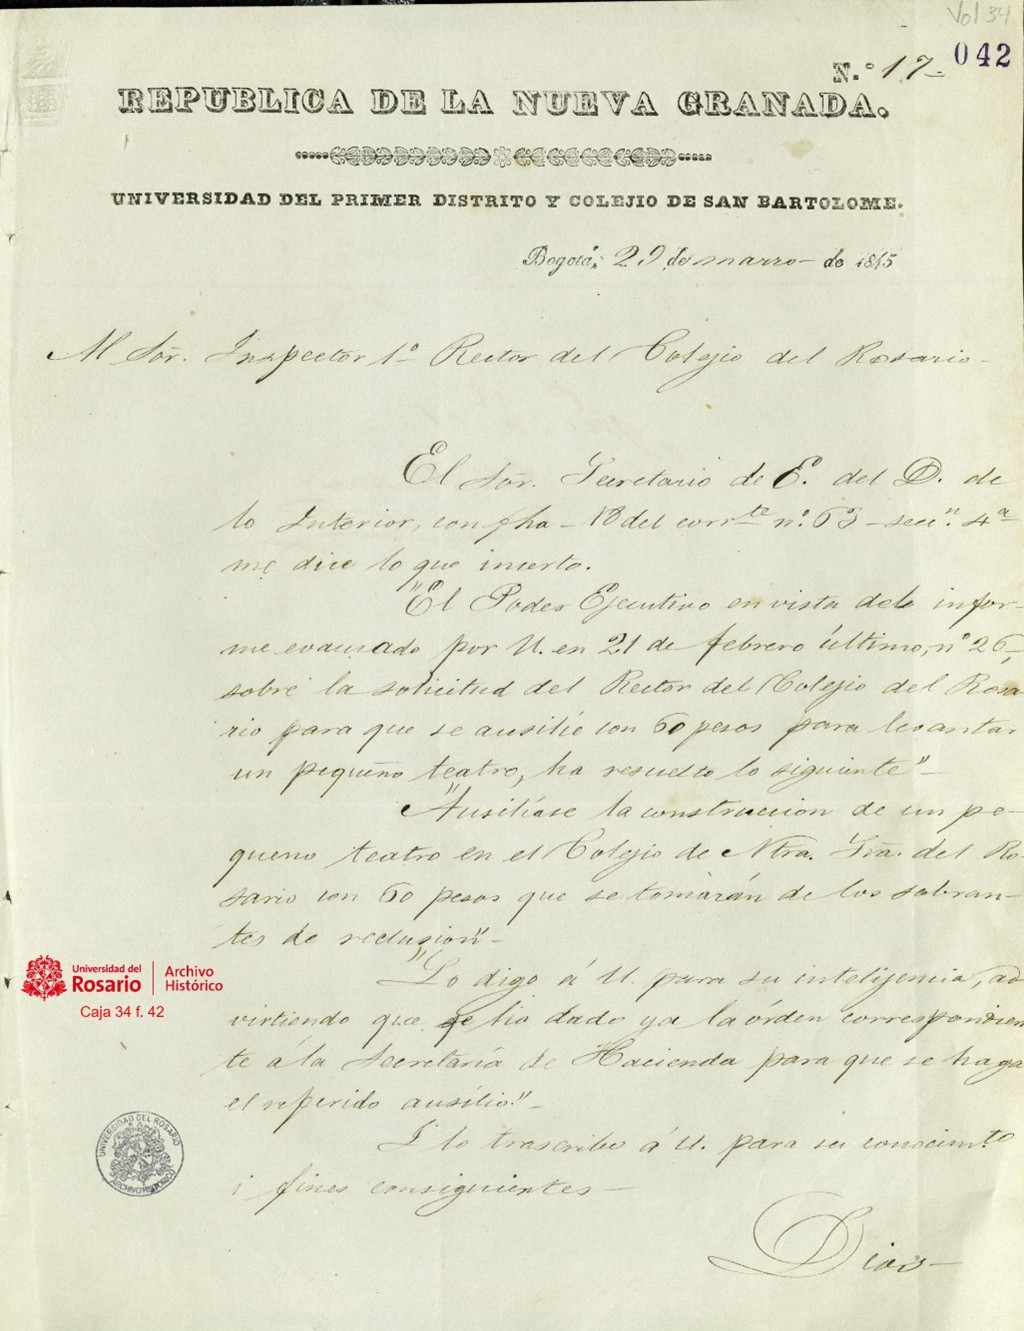 Vol 34
N.° 17- 042
REPUBLICA DE LA NUEVA GRANADA.
UNIVERSIDAD DEL PRIMER DISTRITO Y COLEJIO DE SAN BARTOLOME.
Bogotá, 29 de marzo de 1845
Al Sõr. Inspector 1º Rector del Colejio del Rosario-
El Sõr. Secretario de E. del D. de
lo Interior, con fha 18 del corrte nº 63 - secn. 4a
me dice lo que inserto.
"El Poder Ejecutivo en vista del infor-
me evacuado por U. en 21 de febrero último, nº 26,
sobre la solicitud del Rector del Colejio del Rosa-
rio para que se ausilie con 60 pesos para levantar
un pequeño teatro, ha resuelto lo siguiente"-
"Ausiliase la construccion de un pe-
queño teatro en el Colejio de Ntra. Sra. del Ro-
sario con 60 pesos que se tomarán de los sobran-
tes de reclusion"-
"Lo digo á U. para su intelijencia, ad-
virtiendo que se ha dado ya la órden correspondien-
te á la Secretaría de Hacienda para que se haga
el referido ausilio."-
I lo trascribo á U. para su conocimto
i fines consiguientes-
Dios-
Universidad del Rosario | Archivo Histórico
Caja 34 f. 42
UNIVERSIDAD DEL ROSARIO
ARCHIVO HISTÓRICO